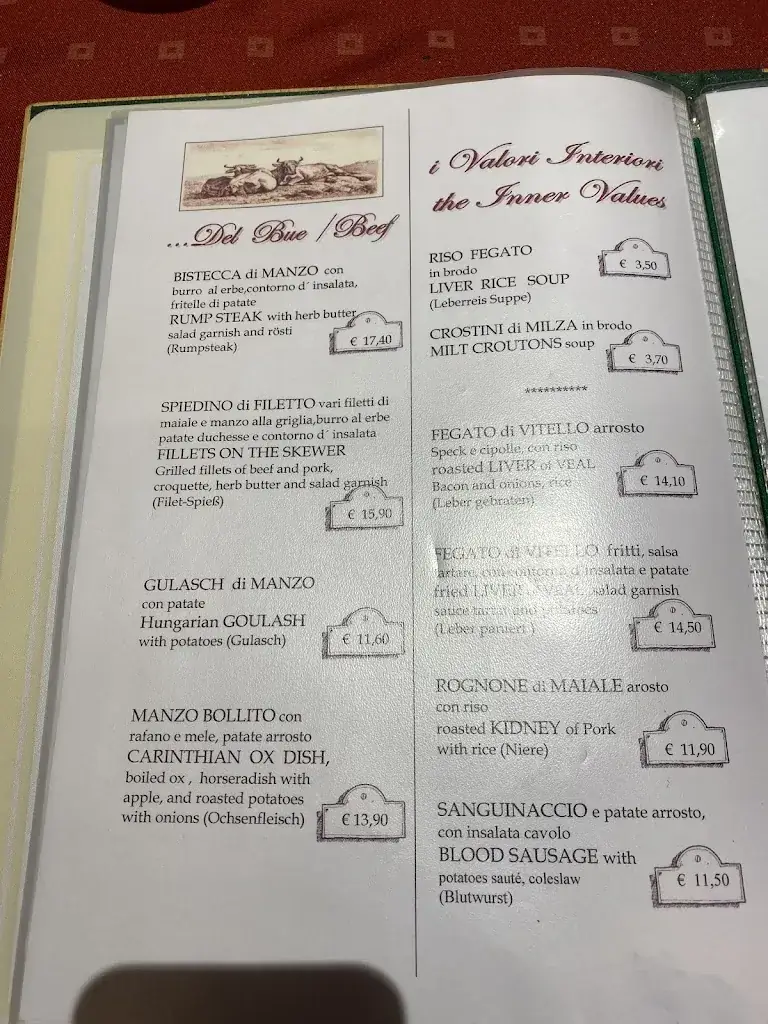 ...Del Bue / Beef
BISTECCA di MANZO con
burro al erbe,contorno d´ insalata,
fritelle di patate
RUMP STEAK with herb butter
salad garnish and rösti
(Rumpsteak)
€ 17,40
SPIEDINO di FILETTO vari filetti di
maiale e manzo alla griglia,burro al erbe
patate duchesse e contorno d´ insalata
FILLETS ON THE SKEWER
Grilled fillets of beef and pork,
croquette, herb butter and salad garnish
(Filet-Spieß)
€ 15,90
GULASCH di MANZO
con patate
Hungarian GOULASH
with potatoes (Gulasch)
€ 11,60
MANZO BOLLITO con
rafano e mele, patate arrosto
CARINTHIAN OX DISH,
boiled ox , horseradish with
apple, and roasted potatoes
with onions (Ochsenfleisch)
€ 13,90
i Valori Interiori
the Inner Values
RISO FEGATO
in brodo
LIVER RICE SOUP
(Leberreis Suppe)
€ 3,50
CROSTINI di MILZA in brodo
MILT CROUTONS soup
€ 3,70
**********
FEGATO di VITELLO arrosto
Speck e cipolle, con riso
roasted LIVER of VEAL
Bacon and onions, rice
(Leber gebraten)
€ 14,10
FEGATO di VITELLO fritti, salsa
tartare, con contorno d´insalata e patate
fried LIVER of VEAL, salad garnish
sauce tartar and potatoes
(Leber paniert )
€ 14,50
ROGNONE di MAIALE arosto
con riso
roasted KIDNEY of Pork
with rice (Niere)
€ 11,90
SANGUINACCIO e patate arrosto,
con insalata cavolo
BLOOD SAUSAGE with
potatoes sauté, coleslaw
(Blutwurst)
€ 11,50